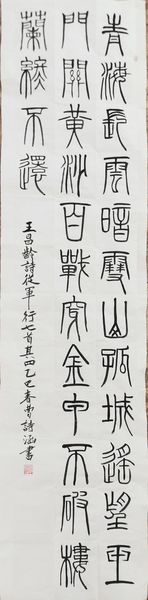 青海長雲暗雪山孤城遙望玉
門關黃沙百戰穿金甲不破樓
蘭終不還
王昌齡詩從軍行七首其四乙巳春曾詩涵書